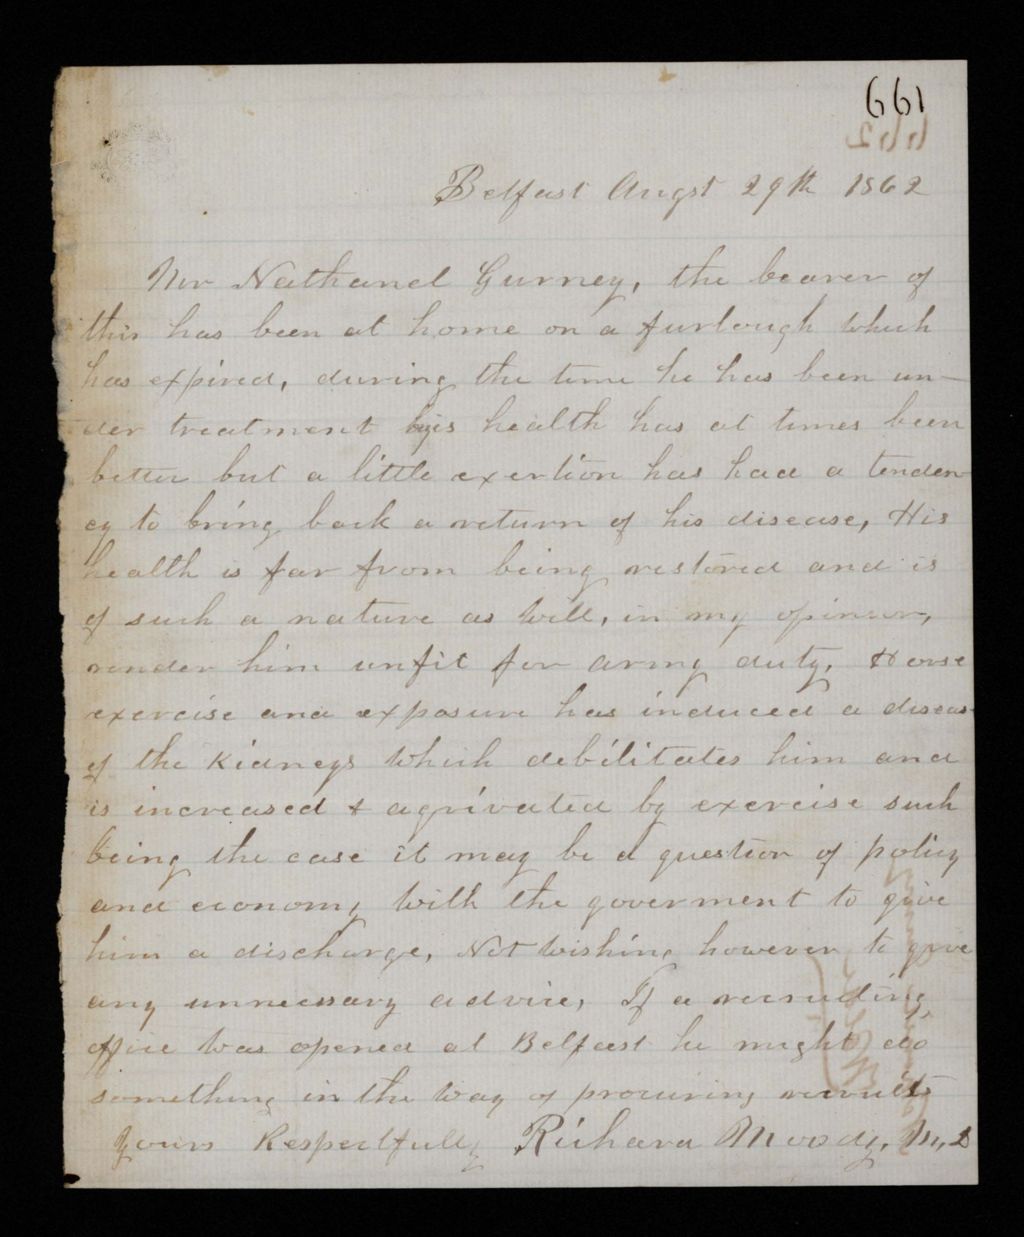 661
Belfast Augst 29th 1862
Mr Nathanel Gurney, the bearer of
this has been at home on a furlough which
has expired, during the time he has been un-
der treatment his health has at times been
better but a little exertion has had a tenden-
cy to bring back a return of his disease, His
health is far from being restored and is
of such a nature as will, in my opinion,
render him unfit for army duty. Horse
exercise and exposure has induced a diseas
of the kidneys which debilitates him and
is increased & agrivated by exercise such
being the case it may be a question of policy
and economy with the goverment to give
him a discharge, Not wishing however to give
any unnecessary advice, If a recruiting
office was opened at Belfast he might do
something in the way of procuring recruits
Yours Respectfully Richard Moody, M,D